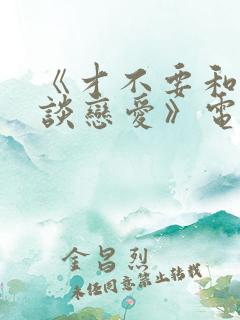 《才不要和
談戀愛》電
金昌烈
未經同意禁止轉載